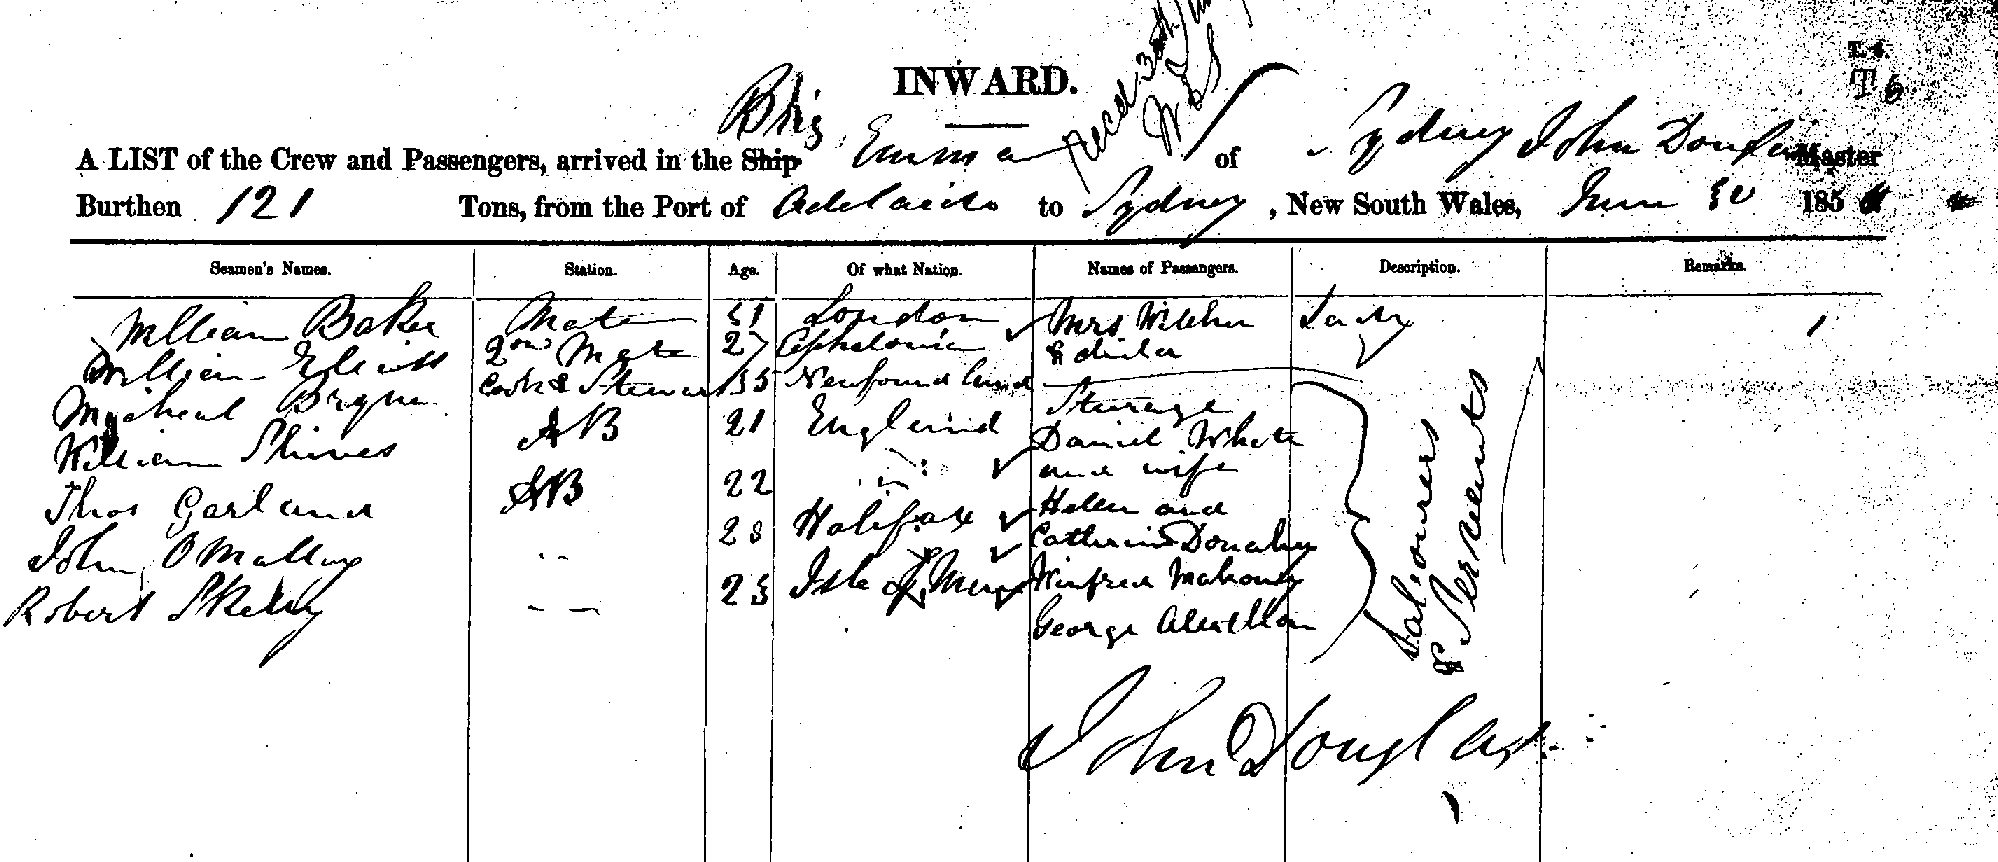 INWARD.
Recd 30th
T 6
A LIST of the Crew and Passengers, arrived in the Ship Brig Emma of Sydney John Douglas Master
Burthen 121 Tons, from the Port of Adelaide to Sydney, New South Wales, June 30 185
Seamen's Names. Station. Age. Of what Nation. Names of Passengers. Description. Remarks.
William Baker Mate 51 London Mrs Lady
William Elliott 2nd Mate 27 Cephelonia &
Micheal Bryne Cook & Steward 35 Newfoundland
Steerage
William AB 21 England Daniel White
and wife
Thos Garland AB 22 " Helen and
John OMalley 28 Halifax Catherine Donahuy
Robert Skelly 23 Isle of Winfred Mahoney
George
Labourers
& Servents
John Douglas